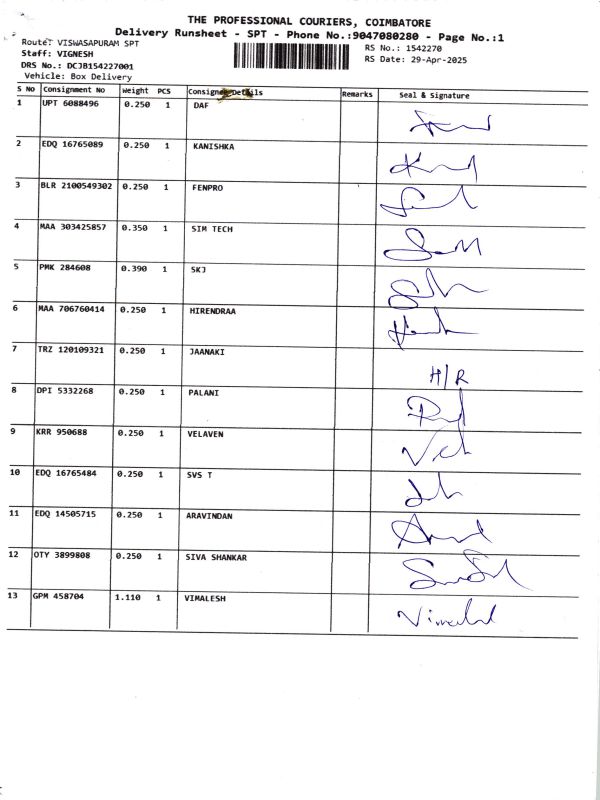 THE PROFESSIONAL COURIERS, COIMBATORE
Delivery Runsheet - SPT - Phone No.:9047080280 - Page No.:1
Route: VISWASAPURAM SPT
Staff: VIGNESH
DRS No.: DCJB154227001
Vehicle: Box Delivery
RS No.: 1542270
RS Date: 29-Apr-2025
S No Consignment No Weight PCS Consignee Details Remarks Seal & Signature
1 UPT 6088496 0.250 1 DAF
2 EDQ 16765089 0.250 1 KANISHKA
3 BLR 2100549302 0.250 1 FENPRO
4 MAA 303425857 0.350 1 SIM TECH
5 PMK 284608 0.390 1 SKJ
6 MAA 706760414 0.250 1 HIRENDRAA
7 TRZ 120109321 0.250 1 JAANAKI H/R
8 DPI 5332268 0.250 1 PALANI
9 KRR 950688 0.250 1 VELAVEN
10 EDQ 16765484 0.250 1 SVS T
11 EDQ 14505715 0.250 1 ARAVINDAN
12 OTY 3899808 0.250 1 SIVA SHANKAR
13 GPM 458704 1.110 1 VIMALESH